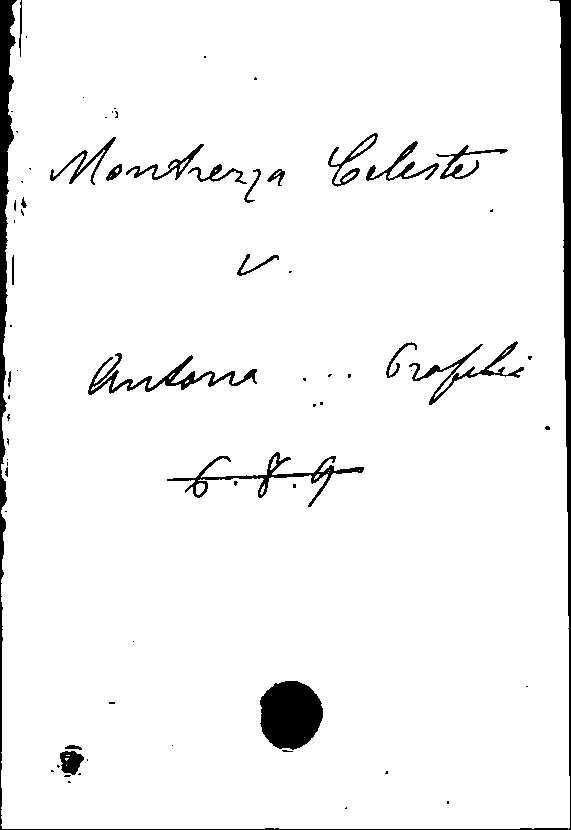 Montrezza Celeste
v.
Antona ...
6.8.9